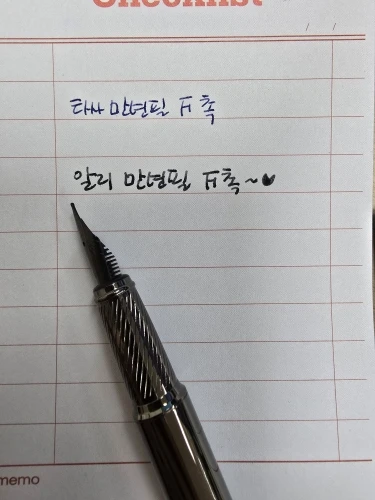 Checklist
/ /
타사 만년필 F 촉
알리 만년필 F촉~♥
memo